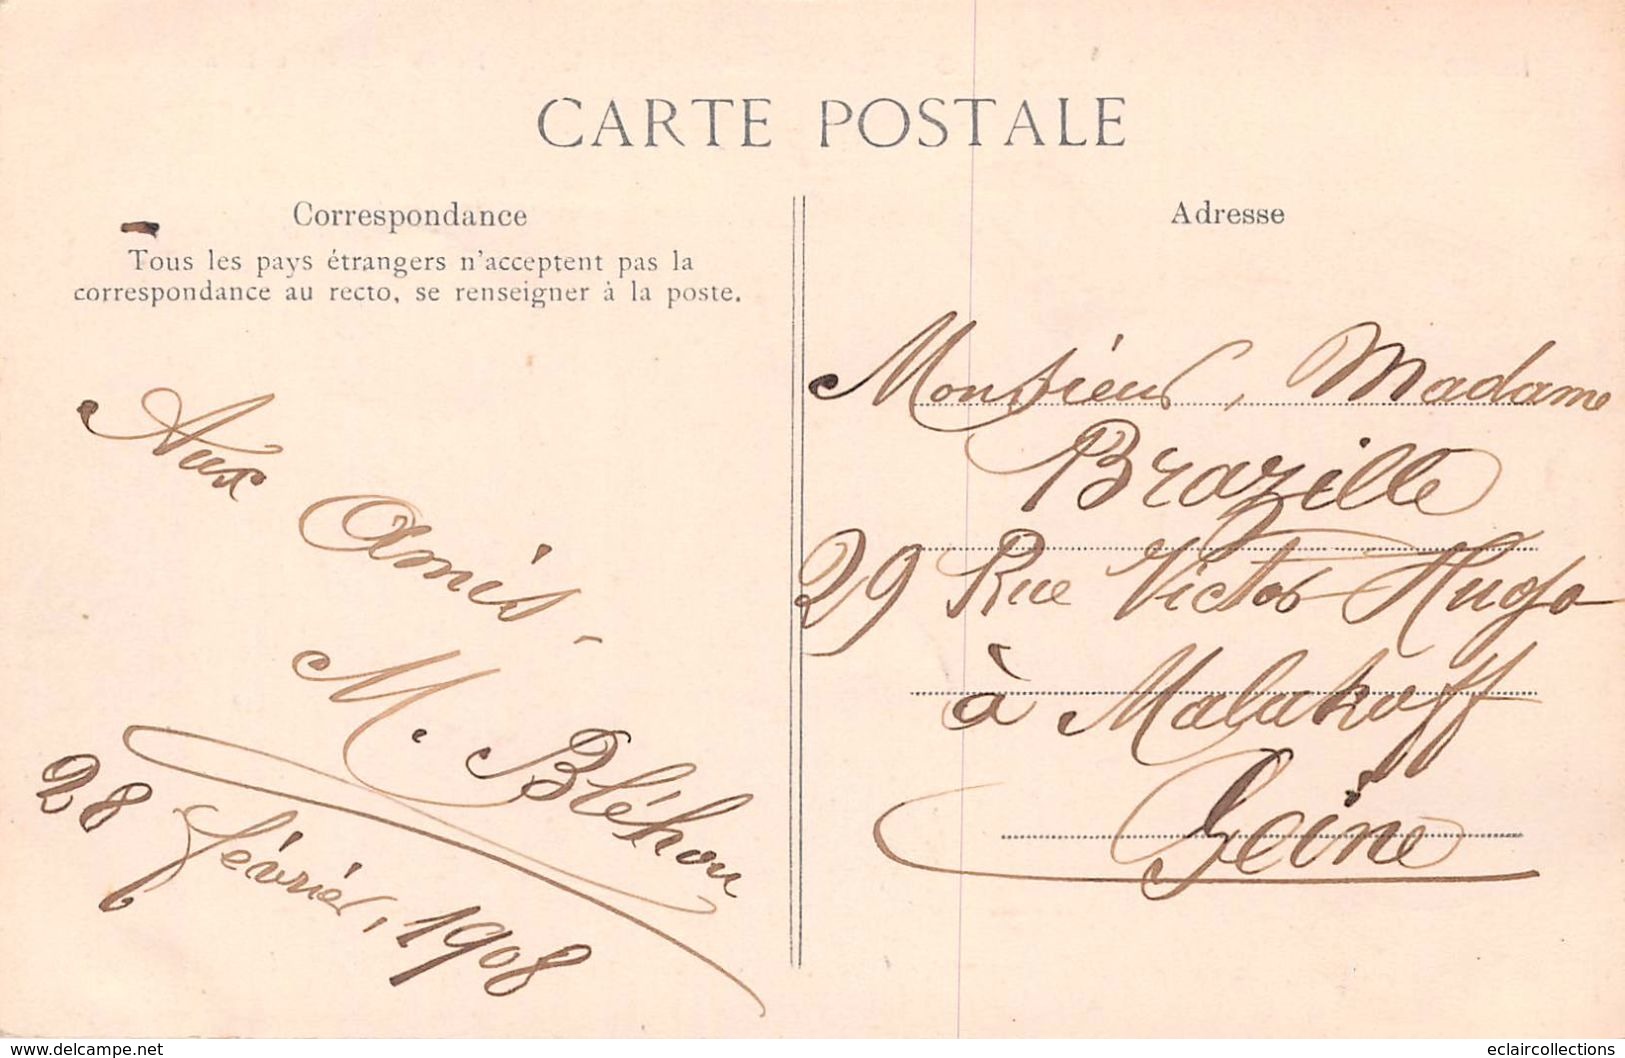 CARTE POSTALE
Correspondance
Tous les pays étrangers n'acceptent pas la
correspondance au recto, se renseigner à la poste.
Aux
Amis -
M. Bléhou
28 février, 1908
Adresse
Monsieur, Madame
Brazille
29 Rue Victor Hugo
à Malakoff
Seine
www.delcampe.net
eclaircollections